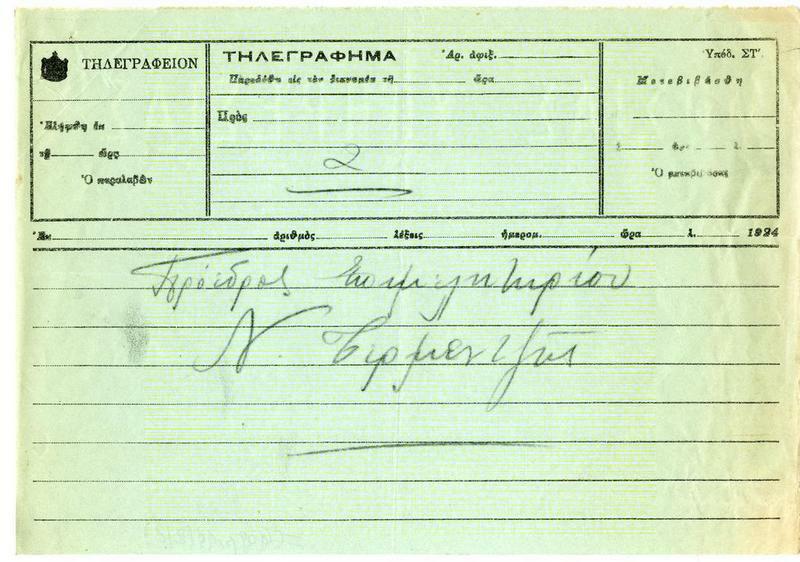 ΤΗΛΕΓΡΑΦΕΙΟΝ
Ἐλήφθη ἐκ
τῇ ὥρᾳ
Ὁ παραλαβὼν
ΤΗΛΕΓΡΑΦΗΜΑ Ἀρ. ἀφιξ.
Παρεδόθη εἰς τὸν διανομέα τῇ ὥρα
Πρὸς
2
Ὑπόδ. ΣΤ΄.
Μετεβιβάσθη
Ὁ μεταβιβάσας
Ἐκ ἀριθμὸς λέξεις ἡμερομ. ὥρα 1924
Πρόεδρος Επιμελητηρίου
Ν.